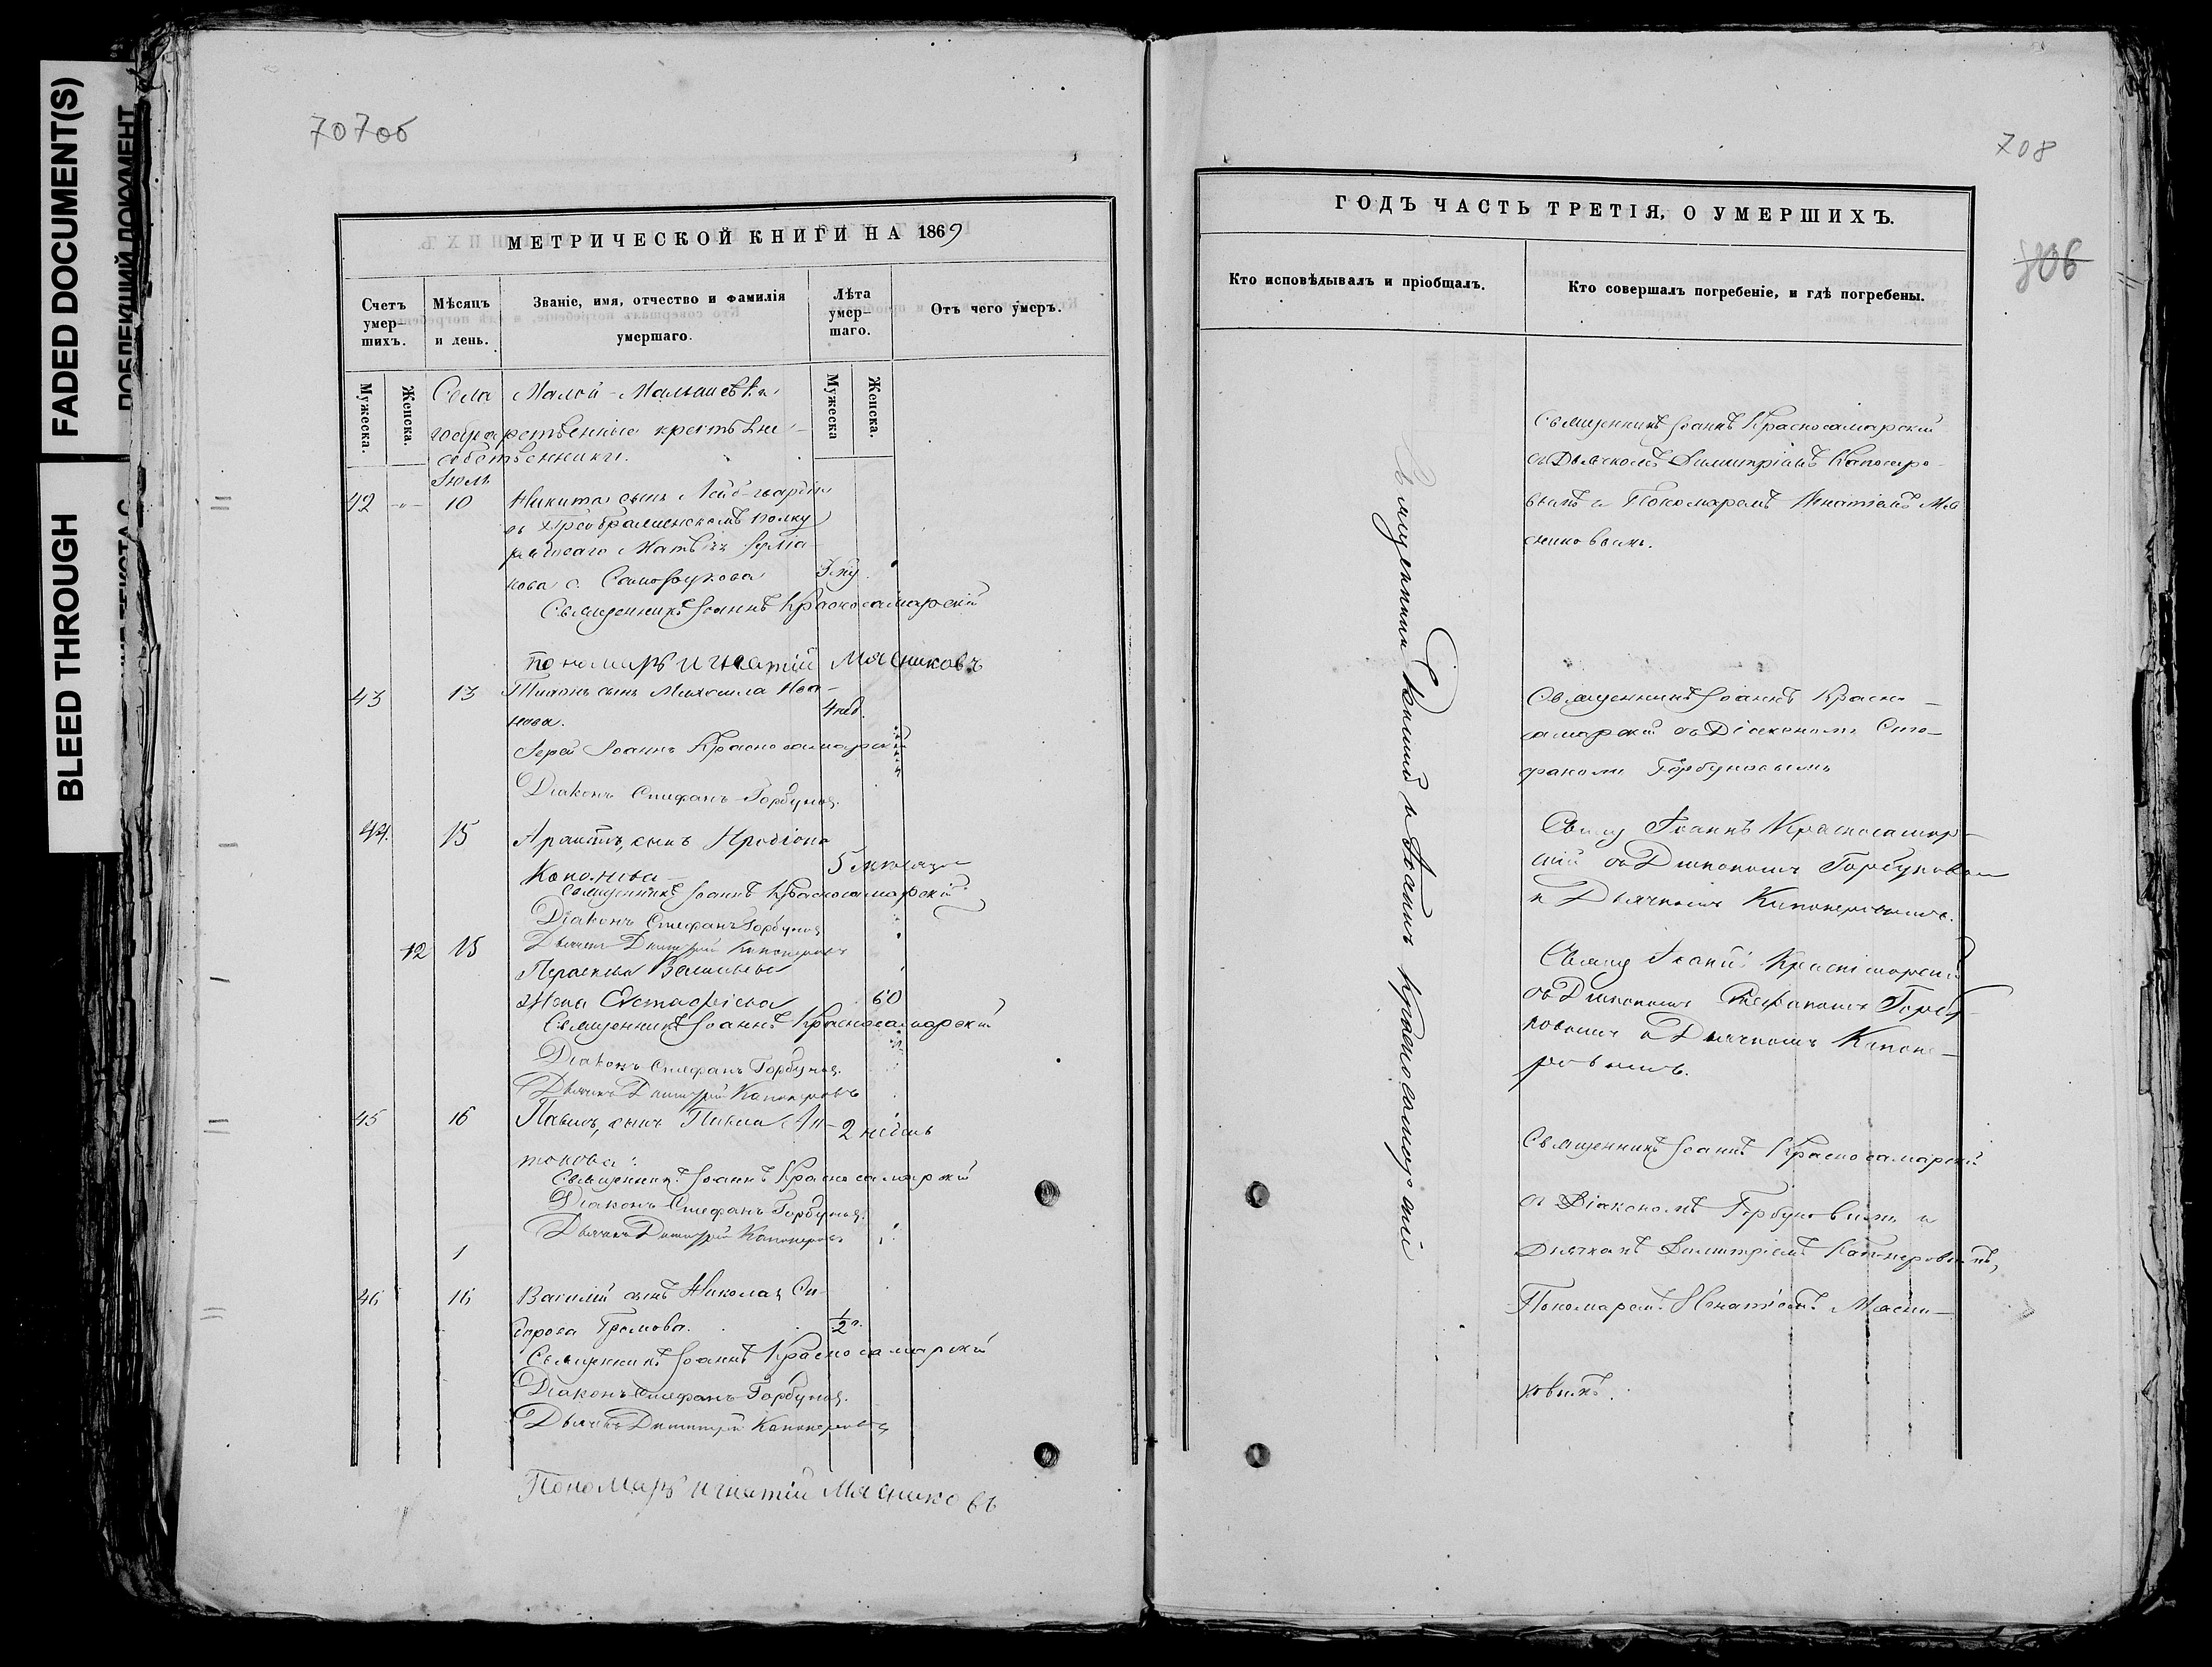 FADED DOCUMENT(S)
BLEED THROUGH
707об
МЕТРИЧЕСКОЙ КНИГИ НА 1869
Счетъ умер-шихъ.
Мѣсяцъ и день.
Званіе, имя, отчество и фамилія умершаго.
Лѣта умер-шаго.
Отъ чего умеръ.
Мужеска.
Женска.
Мужеска
Женска.
Села Малой-Малышевки
государственные крестьяне
собственники.
Июль
42 -"- 10 Никита сынъ Лейб-гвардіи
въ Преображенскомъ полку
Матвѣя
нова с. 3 
Священникъ Іоаннъ Красносамарскій
пономаръ игнатий Мясниковъ
43 13 Тихонъ сынъ Михаила Ива-
нова. 4 нед.
Іерей Іоаннъ Красносамарскій
Діаконъ Стефанъ Горбуновъ
44. 15 сынъ Иродіона
Кононова 5 мѣсяцъ
Священникъ Іоаннъ Красносамарскій
Діаконъ Стефанъ Горбуновъ
Дьячекъ Димитрій Канонеровъ
12 15 Параскева Васильева
жена Евстафіева 60
Священникъ Іоаннъ Красносамарскій
Діаконъ Стефанъ Горбуновъ.
Дьячекъ Димитрій Канонеровъ
45 16 Павелъ, сынъ Ан-
тонова. 2 недѣль
Священникъ Іоаннъ Красносамарскій
Діаконъ Стефанъ Горбуновъ
Дьячекъ Димитрій Канонеровъ
1
46 16 Василій сынъ Николая Си-
дорова Громова. 1/2 г.
Священникъ Іоаннъ Красносамарскій
Діаконъ Стефанъ Горбуновъ.
Дьячекъ Димитрій Канонеровъ
Пономаръ игнатий Мясниковъ
708
806
ГОДЪ ЧАСТЬ ТРЕТІЯ, О УМЕРШИХЪ.
Кто исповѣдывалъ и пріобщалъ.
Кто совершалъ погребеніе, и гдѣ погребены.
Священникъ и Іоаннъ Красносамарскій
Священникъ Іоаннъ Красносамарскій
съ Дьячкомъ Димитріемъ Канонеро-
вымъ и Пономаремъ Игнатіемъ Мя
сниковымъ.
Священникъ Іоаннъ Красно-
самарскій съ Діакономъ Сте-
фаномъ Горбуновымъ
Свящ Іоаннъ Красносамар-
скій съ Діакономъ Горбуновым
и Дьячкомъ Канонеровымъ.
Свящ Іоаннъ Красносмарскій
съ Діакономъ Стефаномъ Горбу-
новымъ и Дьячкомъ Каноне-
ровымъ.
Священникъ Іоаннъ Красносамарскій
съ Діакономъ Горбуновымъ и
Дьячкомъ Димитріемъ Канонеровымъ,
Пономаремъ Игнатіемъ Мясни-
ковымъ.